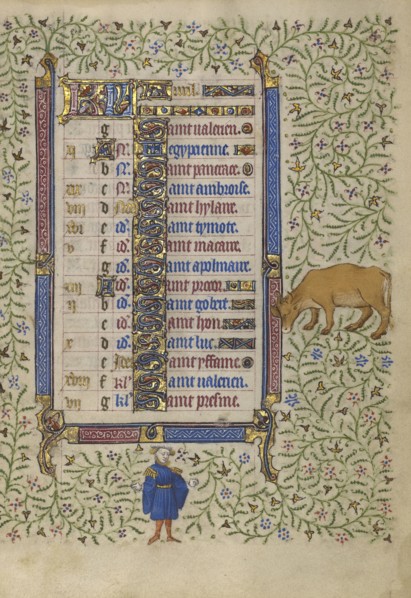 KL Auril.
g Saint ualerien.
xi A N. egypcienne.
b Saint pancrace.
xix c N. Saint ambroise.
viii d Saint hylaire.
xvi e id. Saint tymote.
v f id. Saint macaire.
g id. Saint apolinaire.
xiii A id. Saint
ii b id. Saint gobert.
c id. Saint
x d id. Saint luc.
e Saint
xviii f kl. Saint ualerien.
vii g kl. Saint